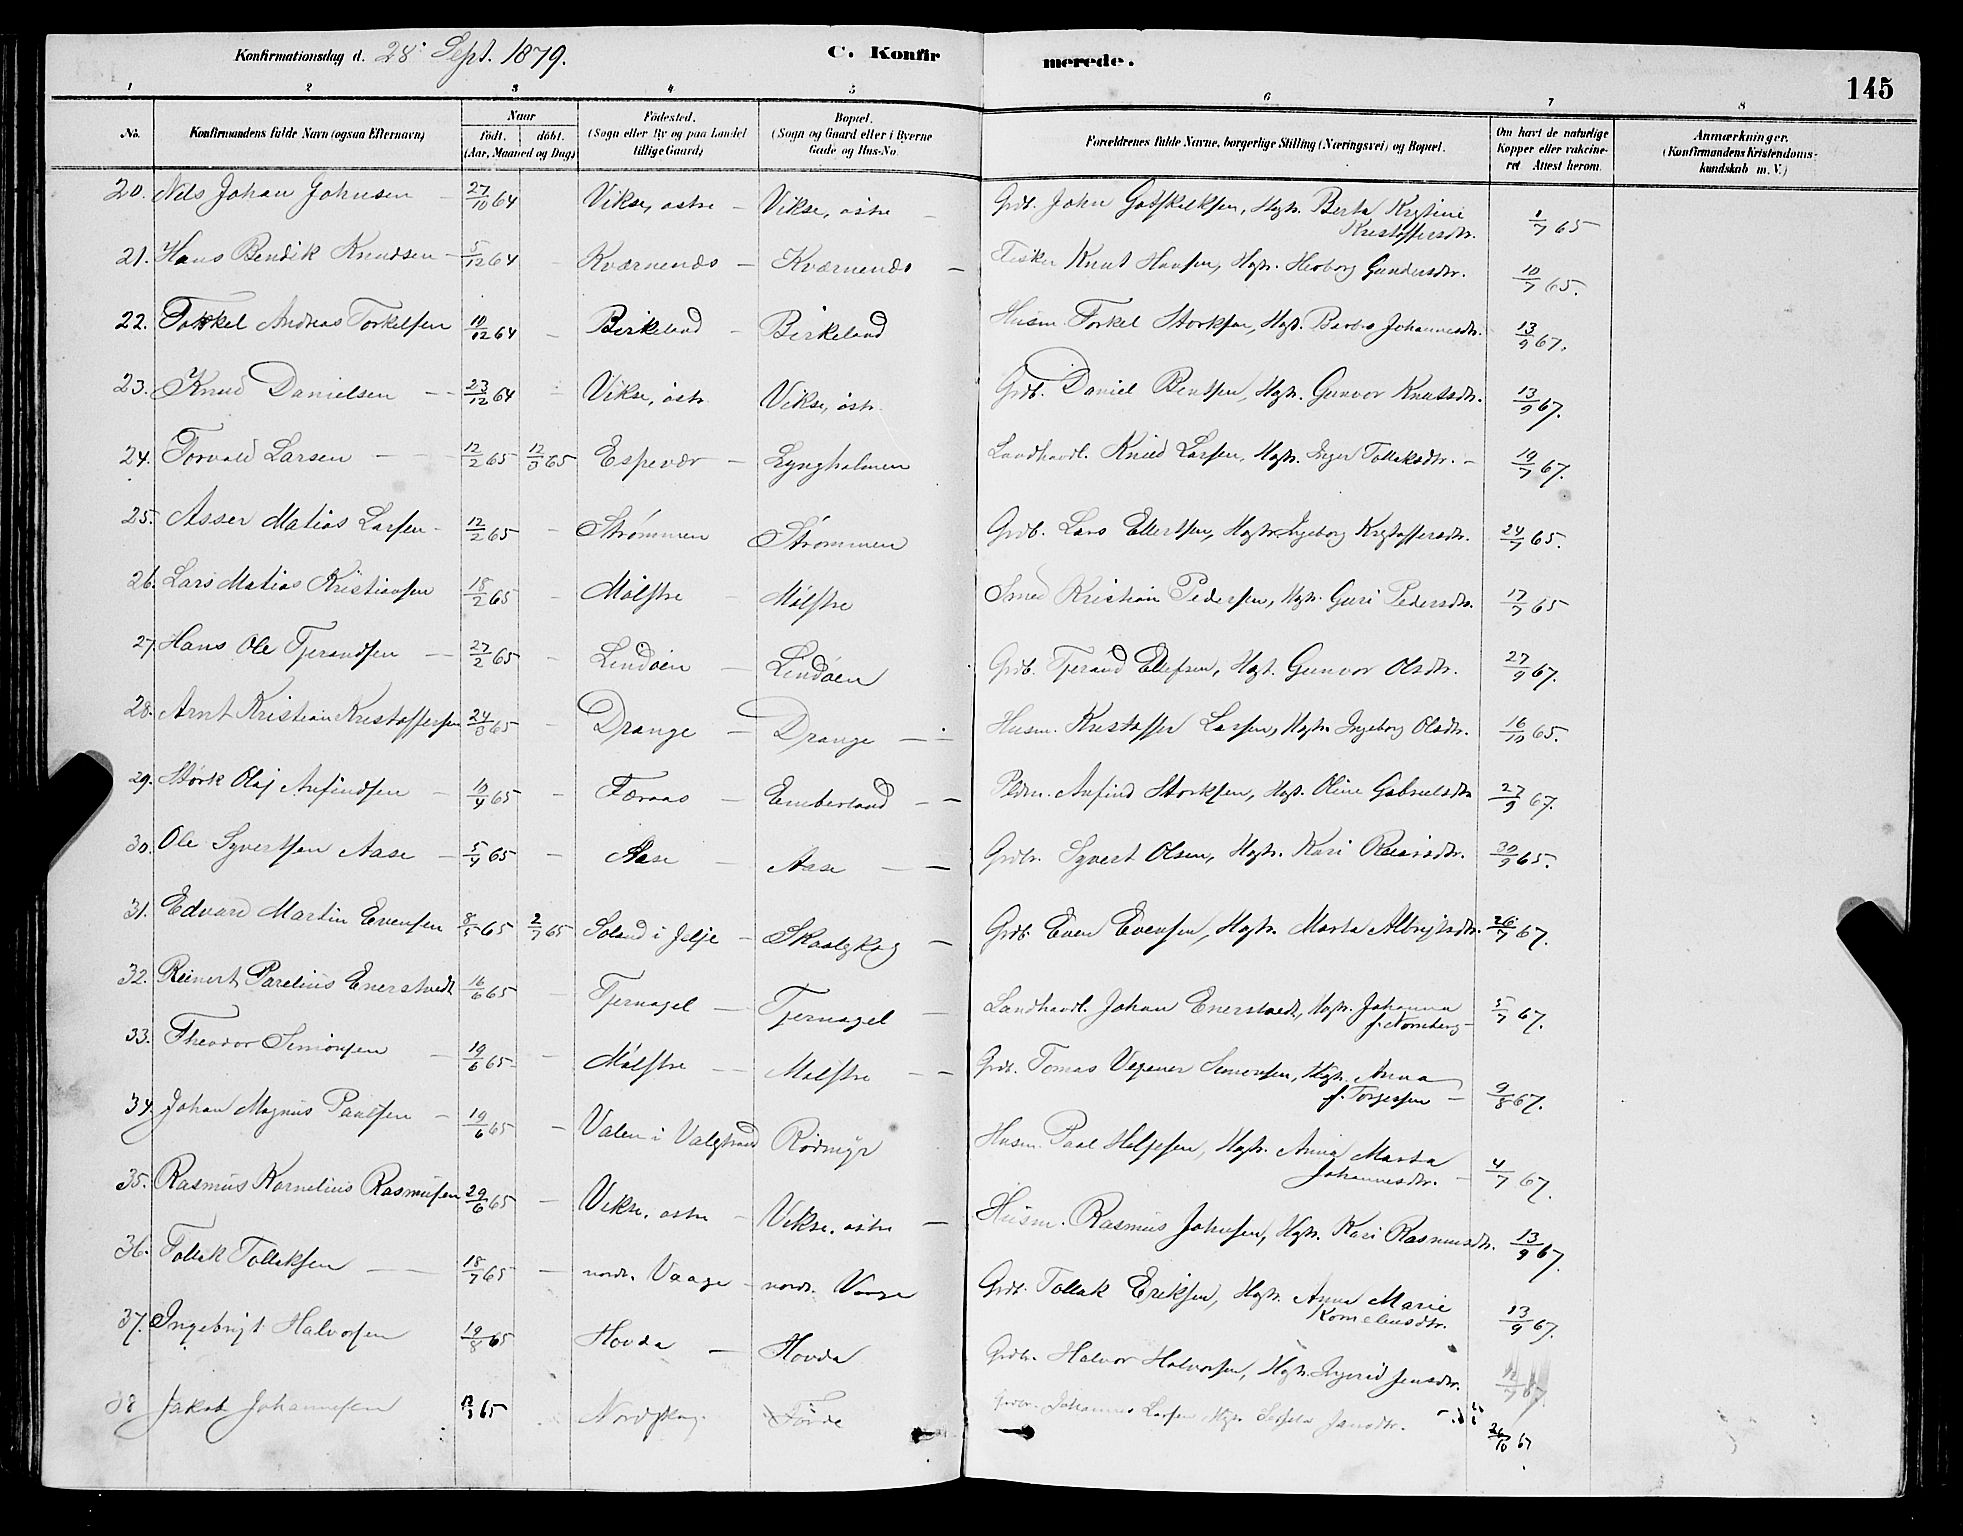 Konfirmationsdag d. 28. Sept. 1879.
C. Konfirmerede.
145
1 2 3 4 5 6 7 8
No.
Konfirmandens fulde Navn (ogsaa Efternavn)
Naar
födt. döbt.
(Aar, Maaned og Dag)
Födested.
(Sogn eller By og paa Landet
tillige Gaard)
Bopæl.
(Sogn og Gaard eller i Byerne
Gade og Hus-No.
Forældrenes fulde Navne, borgerlige Stilling (Næringsvei) og Bopæl.
Om havt de naturlige
Kopper eller vakcine-
ret Attest herom.
Anmærkninger.
(Konfirmandens Kristendoms-
kundskab m. V.)
20. Nils Johan Johnsen – 27/10 64 Vikse, østre – Vikse, østre – Grdb. John Gotskalksen, Hgtr. Berta Kristine
Kristoffersdtr. 1/7 65
21. Hans Bendik Knudsen – 5/12 64 – Kværnenes – Kværnenes – Fisker Knut Hansen, Hgtr. Herborg Gundersdtr. 10/7 65.
22. Torkel Andreas Torkelsen 10/12 64 – Birkeland – Birkeland Husm. Torkel Storksen, Hgtr. Barbro Johannesdtr. 13/9 67.
23. Knud Danielsen – – 23/12 64 – Vikse, østr. Vikse, østr. Grdb. Daniel Bentsen, Hgtr. Gunvor Knutsdtr. 13/9 67.
24. Torvald Larsen – 12/2 65 12/3 65 Espevær – Lyngholmen Landhandl. Knud Larsen, Hgtr. Inger Tollaksdtr. – 19/7 67.
25. Asser Matias Larsen – 12/2 65 – Strømmen Strømmen Grdb. Lars Ellertsen, Hgtr. Ingeborg Kristoffersdtr. 24/7 65.
26. Lars Matias Kristiansen 18/2 65 – Mølstre – Mølstre Smed Kristian Pedersen, Hgtr. Guri Pedersdtr. 17/7 65
27. Hans Ole Tjerandsen – – 27/2 65 – Lindøen – Lindøen Grdb. Tjerand Ellefsen, Hgtr. Gunvor Olsdtr. 27/9 67.
28. Arnt Kristian Kristoffersen 24/3 65 – Drange – Drange – – Husm. Kristoffer Larsen, Hgtr. Ingeborg Olsdtr. 16/10 65.
29. Størk Olaj Anfindsen – 10/4 65 – Føraas – Emberland – – Pldm. Anfind Storksen, Hgtr. Oline Gabrielsdtr. 27/9 67.
30. Ole Syvertsen Aase – 5/4 65 – Aase – Aase – – Grdbr. Syvert Olsen, Hgtr. Kari Reiersdtr. 30/9 65.
31. Edvard Martin Evensen 8/5 65 2/7 65 Soland i Jelse – – Grdb. Even Evensen, Hgtr. Marta Albrigtsdtr. 26/7 67.
32. Reinert Parelius Enerstvedt 16/6 65 – Tjernagel – Tjernagel – Landhandl. Johan Enerstvedt, Hgtr. Johanna
f. Nornberg – 5/7 67.
33. Theodor Simonsen – 19/6 65 – Mølstre – – Mølstre – – Grdb. Tomas Vegener Simonsen, Hgtr. Anna
f. Torgersen – 9/8 67.
34. Johan Magnus Paulsen – 19/6 65 – Valen i Valestrand Rødmyr Husm. Paal Helgesen, Hgtr. Anna Marta
Johannesdtr. – 4/7 67.
35. Rasmus Kornelius Rasmusen 29/6 65 – Vikse, østre – Vikse, østre – Husm. Rasmus Johnsen, Hgtr. Kari Rasmusdtr. 13/9 67.
36. Tollak Tollaksen – – 18/7 65 – nordr. Vaage – nordr. Vaage Grdb. Tollak Eriksen, Hgtr. Anna Marie
Korneliusdtr. 13/9 67.
37. Ingebrigt Halvorsen 19/8 65 Hovda – Hovda Grdbr. Halvor Halvorsen, Hgtr. Ingerid Jensdtr. 67.
38 Jakob Johannesen 65 Nordskog Førde Grdbr. Johannes Larsen, Hgtr. Jansdtr. 26/10 67